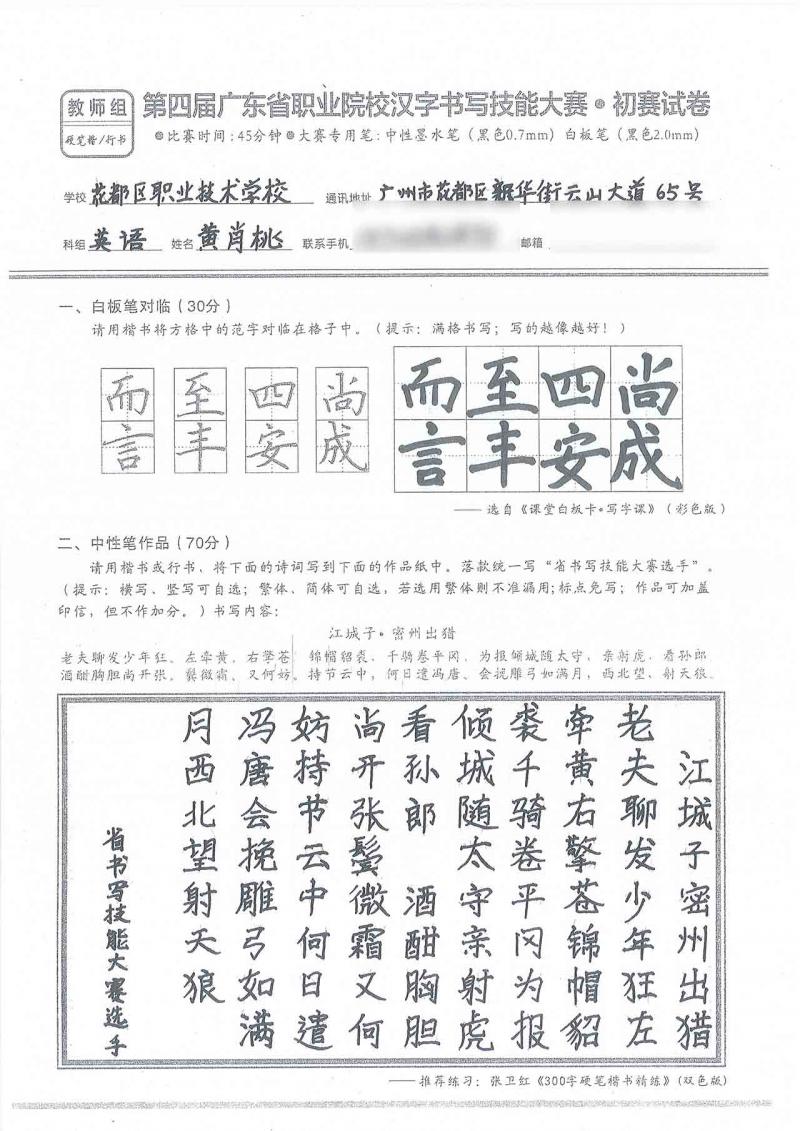 教师组
硬笔楷/行书
第四届广东省职业院校汉字书写技能大赛·初赛试卷
●比赛时间：45分钟●大赛专用笔：中性墨水笔（黑色0.7mm）白板笔（黑色2.0mm）
学校 花都区职业技术学校 通讯地址 广州市花都区新华街云山大道65号
科组 英语 姓名 黄肖桃 联系手机 邮箱
一、白板笔对临（30分）
请用楷书将方格中的范字对临在格子中。（提示：满格书写；写的越像越好！）
而 至 四 尚 而至四尚
言 丰 安 成 言丰安成
——选自《课堂白板卡·写字课》（彩色版）
二、中性笔作品（70分）
请用楷书或行书，将下面的诗词写到下面的作品纸中。落款统一写“省书写技能大赛选手”。
（提示：横写、竖写可自选；繁体、简体可自选，若选用繁体则不准漏用；标点免写；作品可加盖
印信，但不作加分。）书写内容：
江城子·密州出猎
老夫聊发少年狂。左牵黄，右擎苍 锦帽貂裘，千骑卷平冈。为报倾城随太守，亲射虎，看孙郎
酒酣胸胆尚开张。鬓微霜，又何妨。持节云中，何日遣冯唐。会挽雕弓如满月，西北望，射天狼。
江城子密州出猎
老夫聊发少年狂左
牵黄右擎苍锦帽貂
裘千骑卷平冈为报
倾城随太守亲射虎
看孙郎 酒酣胸胆
尚开张鬓微霜又何
妨持节云中何日遣
冯唐会挽雕弓如满
月西北望射天狼
省书写技能大赛选手
——推荐练习：张卫红《300字硬笔楷书精练》（双色版）